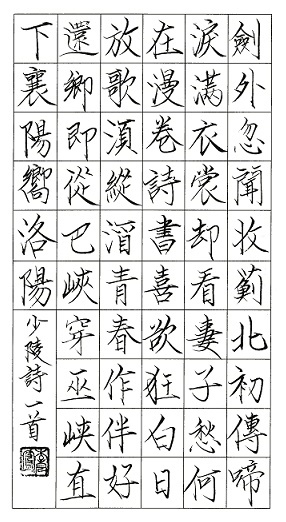 劍外忽聞收薊北初傳啼
淚滿衣裳却看妻子愁何
在漫卷詩書喜欲狂白日
放歌湏縱酒青春作伴好
還鄉即從巴峽穿巫峽直
下襄陽嚮洛陽
少陵詩一首